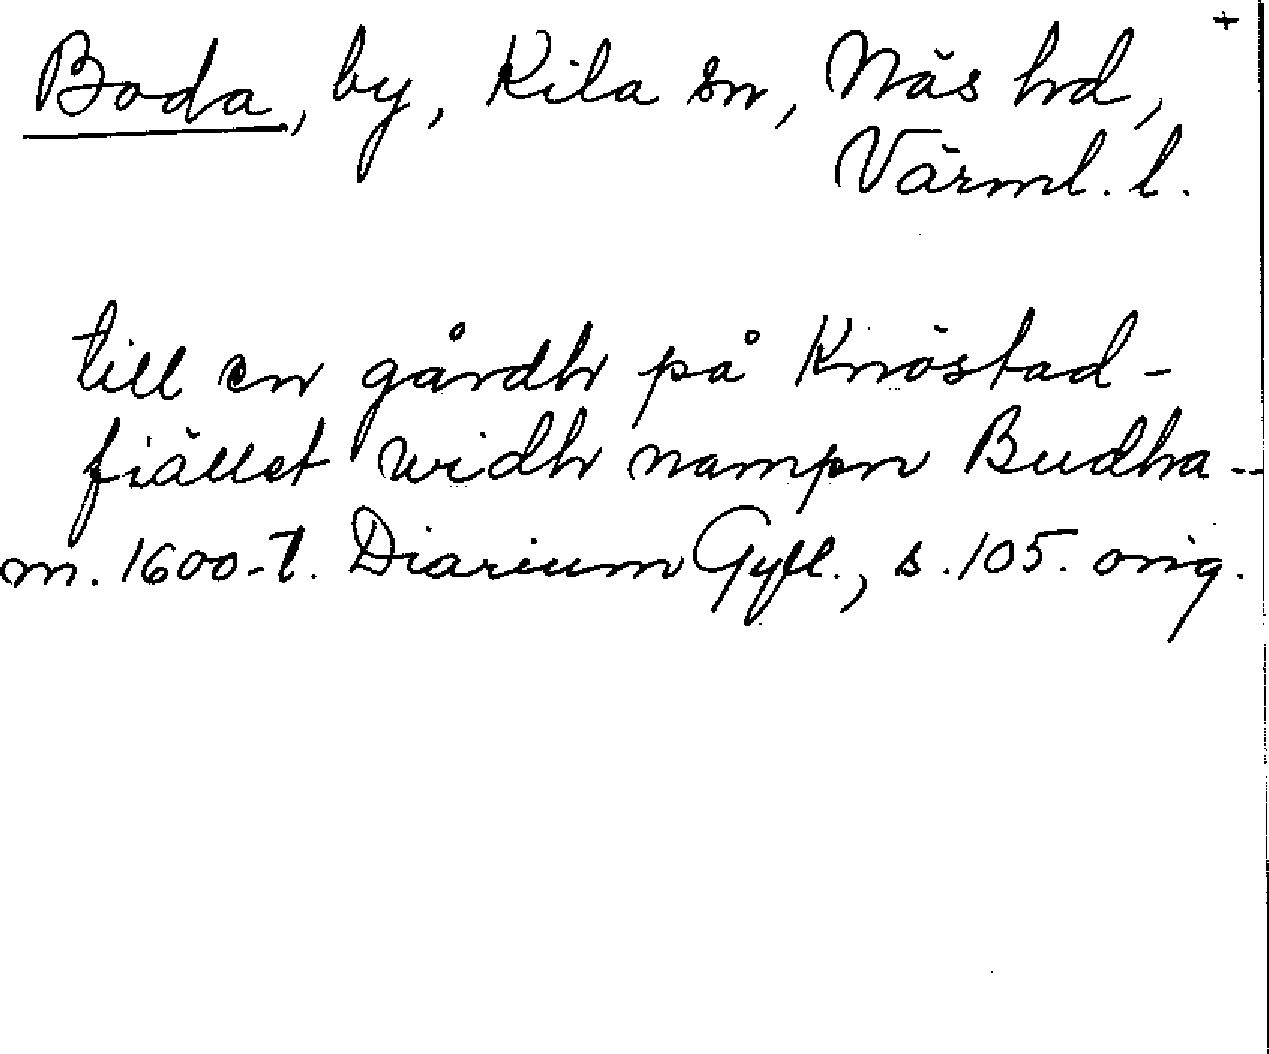 +
Boda, by, Kila sn, Näs hd,
Värml. l.
till en gårdh på Knöstad-
fiället widh nampn Budha --
m. 1600-t. Diarium Gyll., s. 105. orig.